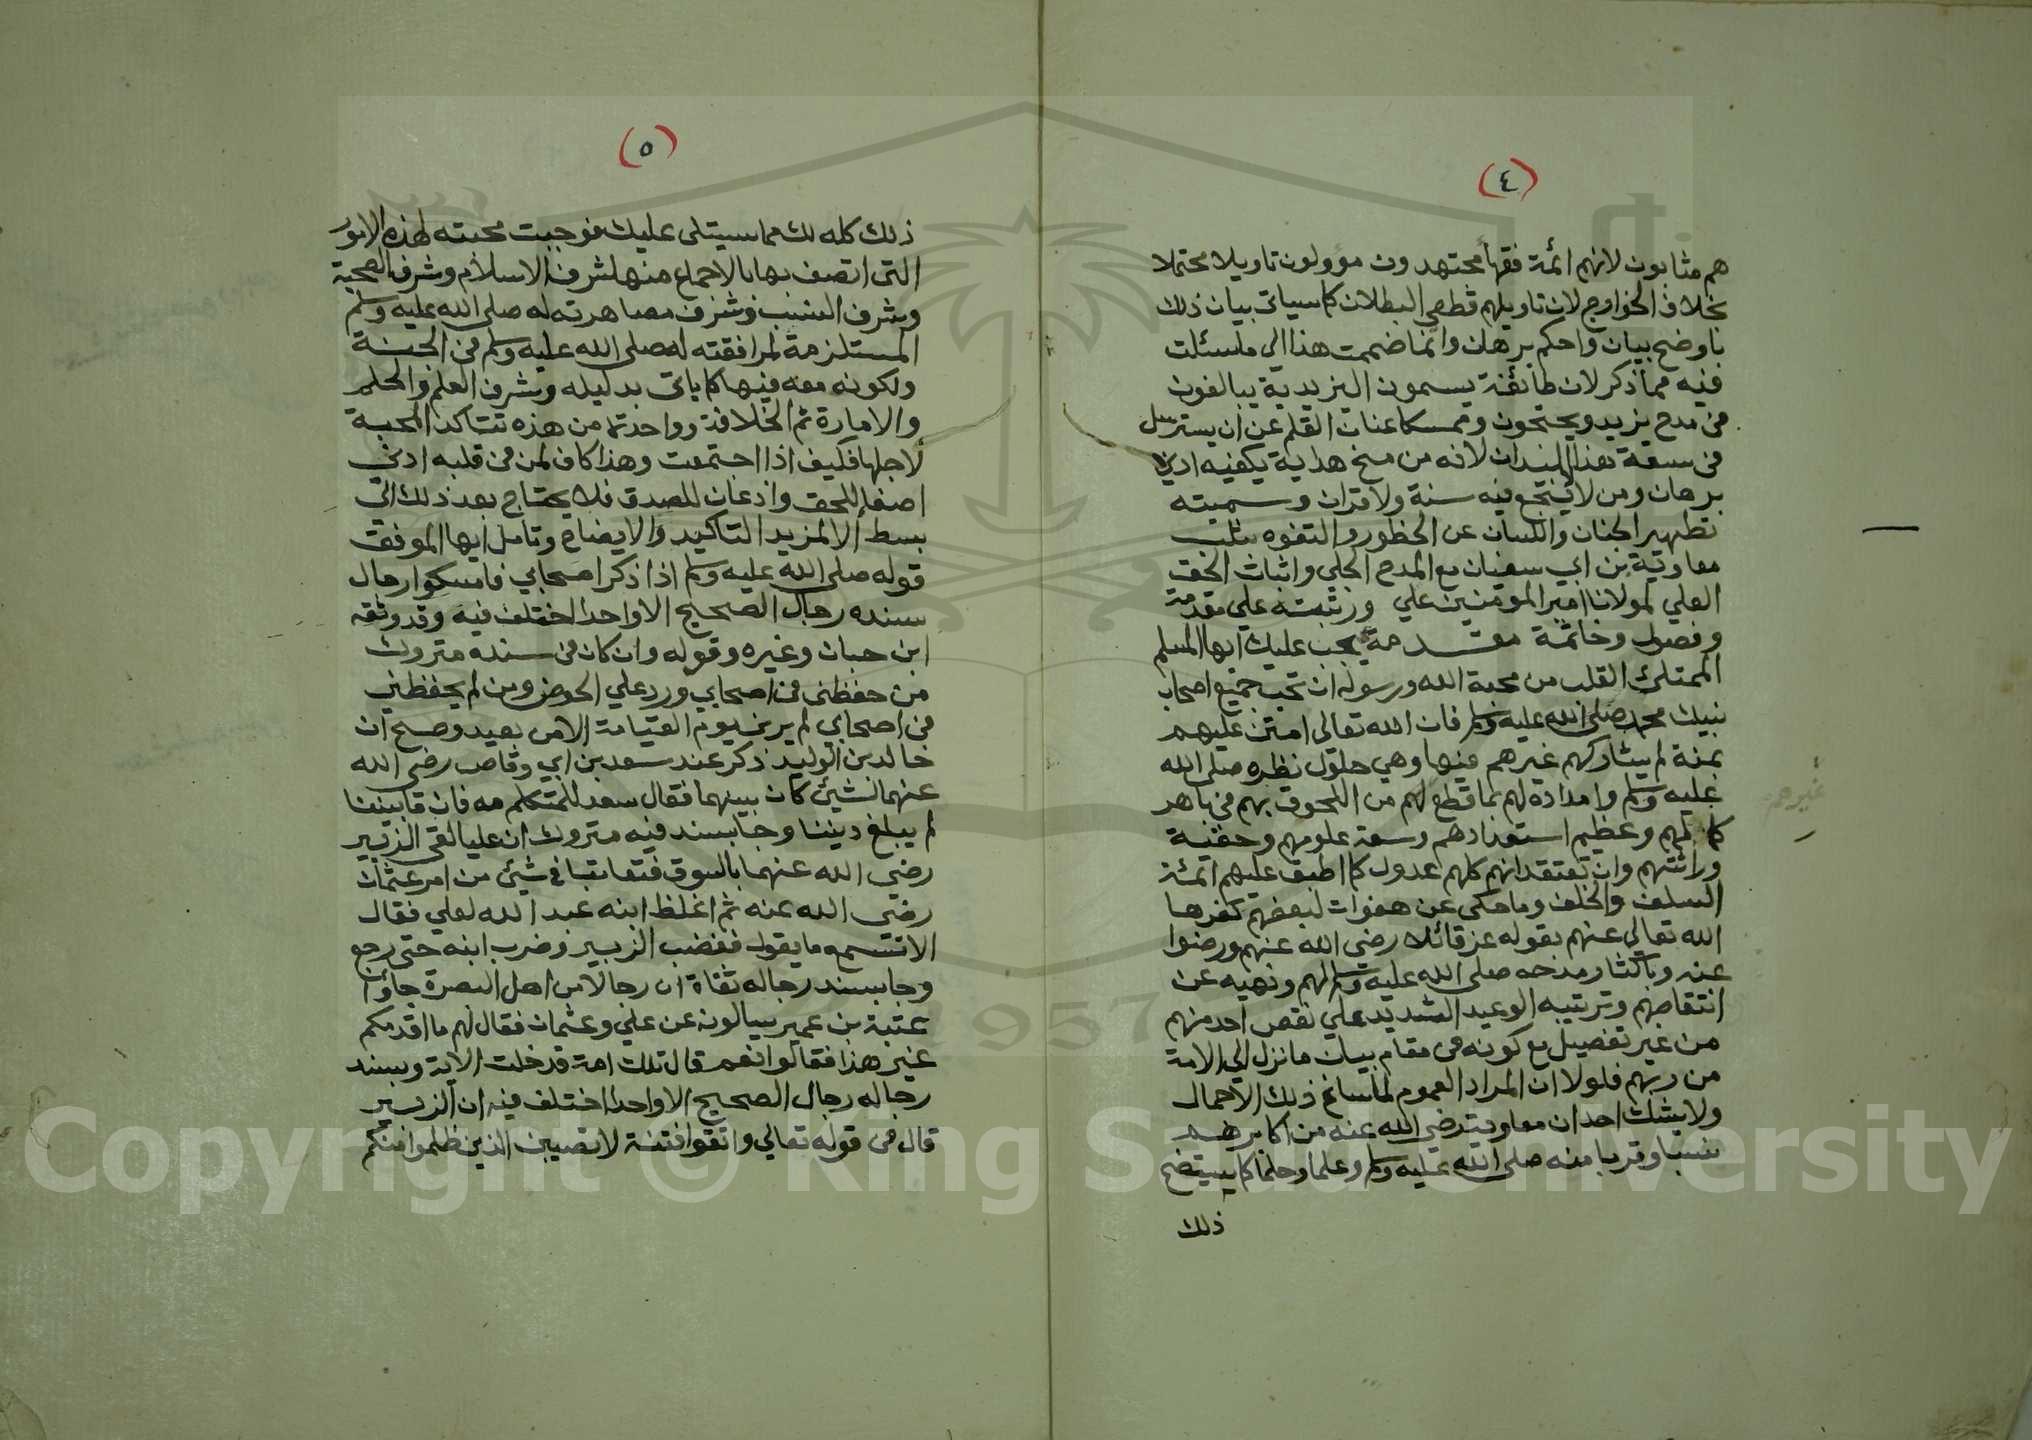 (٤)
هم مثابون لانهم ائمة فقهأ مجتهدون مؤولون تاويلا محتملا
بخلاف الخوارج لان تاويلهم قطعي البطلان كما سياتى بيان ذلك
باوضح بيان واحكم برهان وانما ضممت هذا الى ما سئلت
فيه مما ذكر لان طائفة يسمون اليزيدية يبالغون
فى مدح يزيد ويحتجون وممسكا عنان القلم عن ان يسترسل
فى سعة هذا الميدان لانه من منح هداية يكفيه ادنى
برهان ومن لا ينتج فيه سنة ولا قران وسميته
تطهير الجنان واللسان عن الخطور والتفوه بثلب
معاوية بن ابي سفيان مع المدح الجلي واثبات الحق
العلي لمولانا امير المؤمنين علي ورتبته علي مقدمة
وفصول وخاتمة مقدمة يجب عليك ايها المسلم
الممتلئ القلب من محبة الله ورسوله ان تحب جميع اصحاب
نبيك محمد صلى الله عليه وسلم فان الله تعالى امتن عليهم
بمنة لم يشاركهم غيرهم فيها وهي حلول نظره صلى الله
عليه وسلم وامداده لهم بما قطع لهم من اللحوق بهم فى باهر
كمالهم وعظيم استعدادهم وسعة علومهم وحقية
وراثتهم وان تعتقد انهم كلهم عدول كما اطبق عليهم ائمة
السلف والخلف وما حكى عن هفوات لبعضهم كفرها
الله تعالي عنهم بقوله عز قائلا رضى الله عنهم ورضوا
عنه وباكثار مدحه صلى الله عليه وسلم لهم ونهيه عن
انتقاصهم وترتيبه الوعيد الشديد علي نقص احد منهم
من غير تفصيل مع كونه فى مقام بيان ما نزل الي الامة
من ربهم فلولا ان المراد العموم لما ساغ ذلك الاجمال
ولا يشك احد ان معاوية رضى الله عنه من اكابرهم
نسبا وقربا منه صلى الله عليه وسلم وعلما وحلما كما يستضح
ذلك
غيرهم
(٥)
ذلك كله لك مما سيتلى عليك فوجبت محبته لهذه الامور
التى اتصف بها بالاجماع منها شرف الاسلام وشرف الصحبة
وشرف النسب وشرف مصاهرته له صلى الله عليه وسلم
المستلزمة لمرافقته له صلى الله عليه وسلم فى الجنة
ولكونه معه فيها كما ياتى بدليله وشرف العلم والحلم
والامارة ثم الخلافة وواحدة من هذه تتاكد المحبة
لاجلها فكيف اذا اجتمعت وهذا كاف لمن فى قلبه ادنى
اصغا للحق واذعان للصدق فلا يحتاج بعد ذلك الى
بسط الا لمزيد التاكيد والايضاح وتامل ايها الموفق
قوله صلى الله عليه وسلم اذا ذكر اصحابي فامسكوا رجال
سنده رجال الصحيح الا واحدا اختلف فيه وقد وثقه
ابن حبان وغيره وقوله وان كان فى سنده متروك
من حفظنى فى اصحابي ورد علي الحوض ومن لم يحفظني
فى اصحابي لم يرنى يوم القيامة الا من بعيد وصح ان
خالد بن الوليد ذكر عند سعد بن ابي وقاص رضى الله
عنهما لشيئ كان بينهما فقال سعد للمتكلم مه فان ما بيننا
لم يبلغ ديننا وجا بسند فيه متروك ان عليا لقى الزبير
رضى الله عنهما بالسوق فتعاتبا في شيئ من امر عثمان
رضى الله عنه ثم اغلظ ابنه عبد الله لعلي فقال
الا تسمع ما يقول فغضب الزبير وضرب ابنه حتى رجع
وجا بسند رجاله ثقاة ان رجالا من اهل البصرة جاؤا
عتبة بن عمير يسالونه عن علي وعثمان فقال لهم ما اقدمكم
غير هذا فقالوا نعم قال تلك امة قد خلت الآية وبسند
رجاله رجال الصحيح الا واحدا اختلف فيه ان الزبير
قال فى قوله تعالي واتقوا فتنة لا تصيبن الذين ظلموا منكم
1957
Copyright © King Saud University